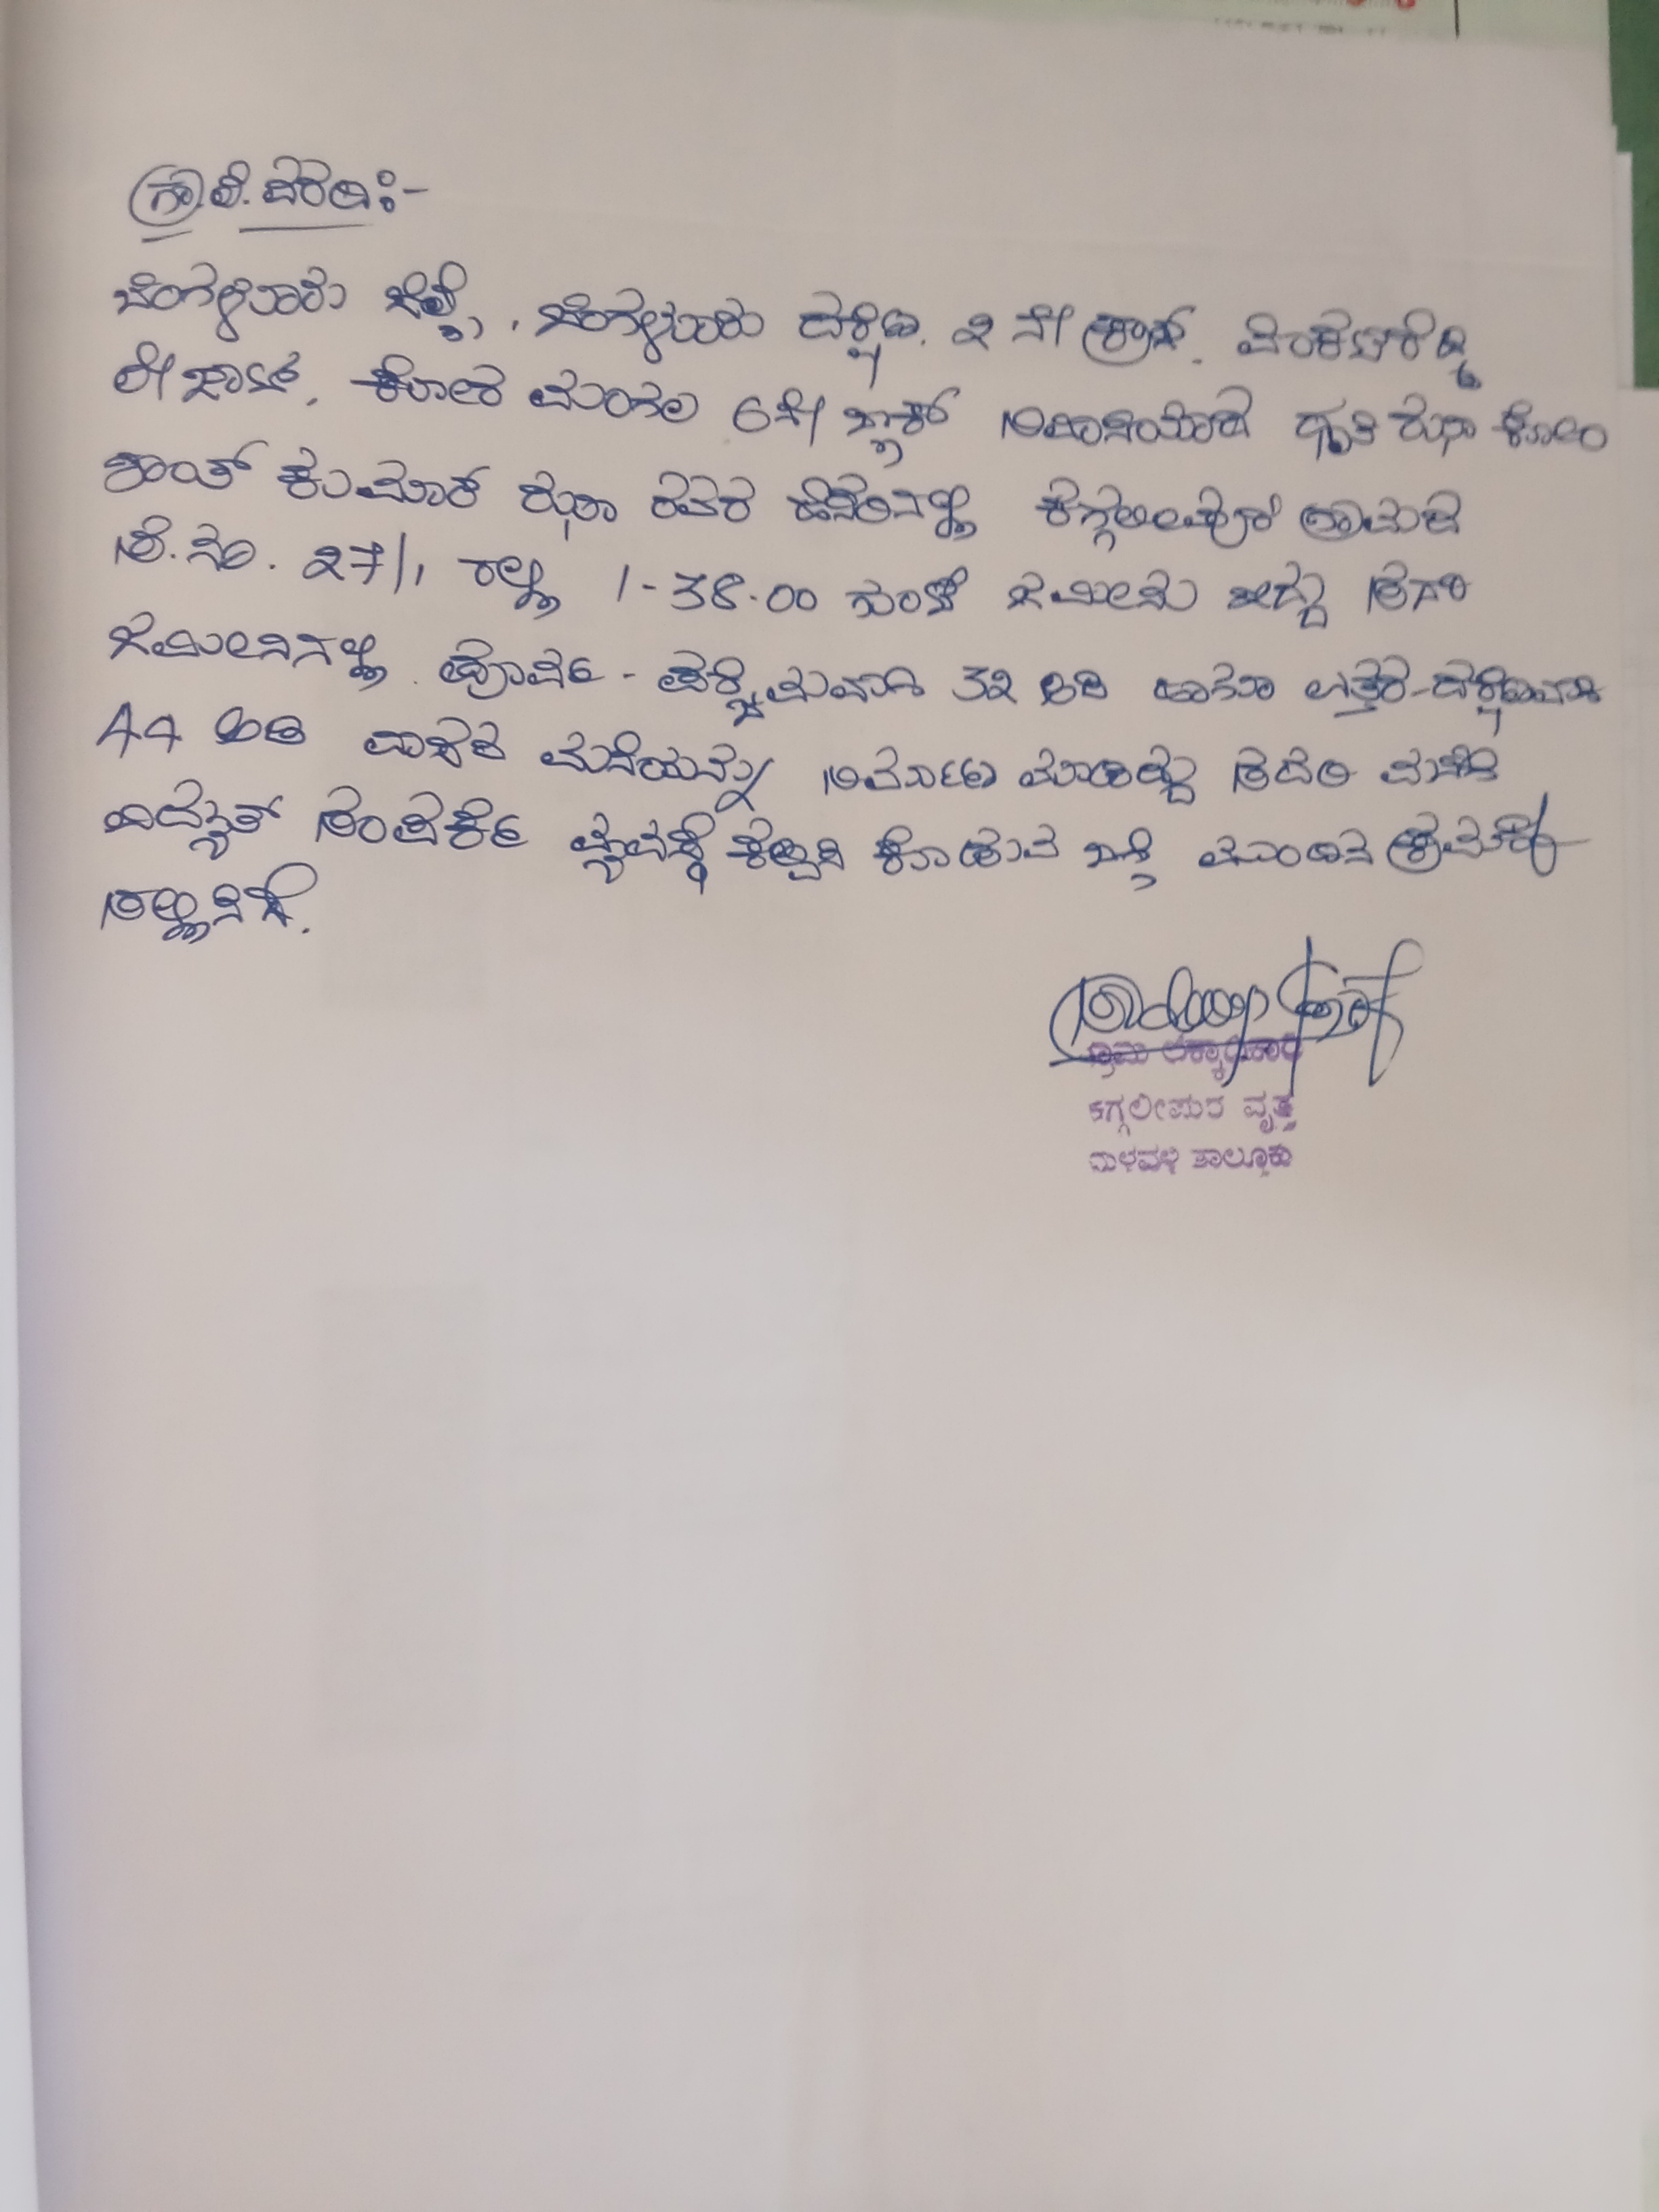 ಗ್ರಾ.ಲೆ. ವರದಿ:-
ಬೆಂಗಳೂರು ಜಿಲ್ಲೆ, ಬೆಂಗಳೂರು ದಕ್ಷಿಣ. 2 ನೇ ಕ್ರಾಸ್. ವೆಂಕಟರೆಡ್ಡಿ
ಲೇಔಟ್, ಕೋರಮಂಗಲ 6ನೇ ಬ್ಲಾಕ್ ನಿವಾಸಿಯಾದ ಝಾ ಕೋಂ
ಕುಮಾರ್ ಝಾ ರವರ ಹೆಸರಿನಲ್ಲಿ ಕಗ್ಗಲೀಪುರ ಗ್ರಾಮದ
ಸ.ನಂ. 27/1 ರಲ್ಲಿ 1-38.00 ಗುಂಟೆ ಜಮೀನು ಇದ್ದು ಸದರಿ
ಜಮೀನಿನಲ್ಲಿ ಪೂರ್ವ - ಪಶ್ಚಿಮವಾಗಿ 32 ಅಡಿ ಹಾಗೂ ಉತ್ತರ-ದಕ್ಷಿಣವಾಗಿ
44 ಅಡಿ ವಾಸದ ಮನೆಯನ್ನು ನಿರ್ಮಾಣ ಮಾಡಿದ್ದು ಸದರಿ ಮನೆಗೆ
ವಿದ್ಯುತ್ ಸಂಪರ್ಕ ವ್ಯವಸ್ಥೆ ಕಲ್ಪಿಸಿ ಕೊಡುವ ಬಗ್ಗೆ ಮುಂದಿನ ಕ್ರಮಕ್ಕೆ
ಸಲ್ಲಿಸಿದೆ.
ಗ್ರಾಮ ಲೆಕ್ಕಾಧಿಕಾರಿ
ಕಗ್ಗಲೀಪುರ ವೃತ್ತ
ಮಳವಳ್ಳಿ ತಾಲ್ಲೂಕು